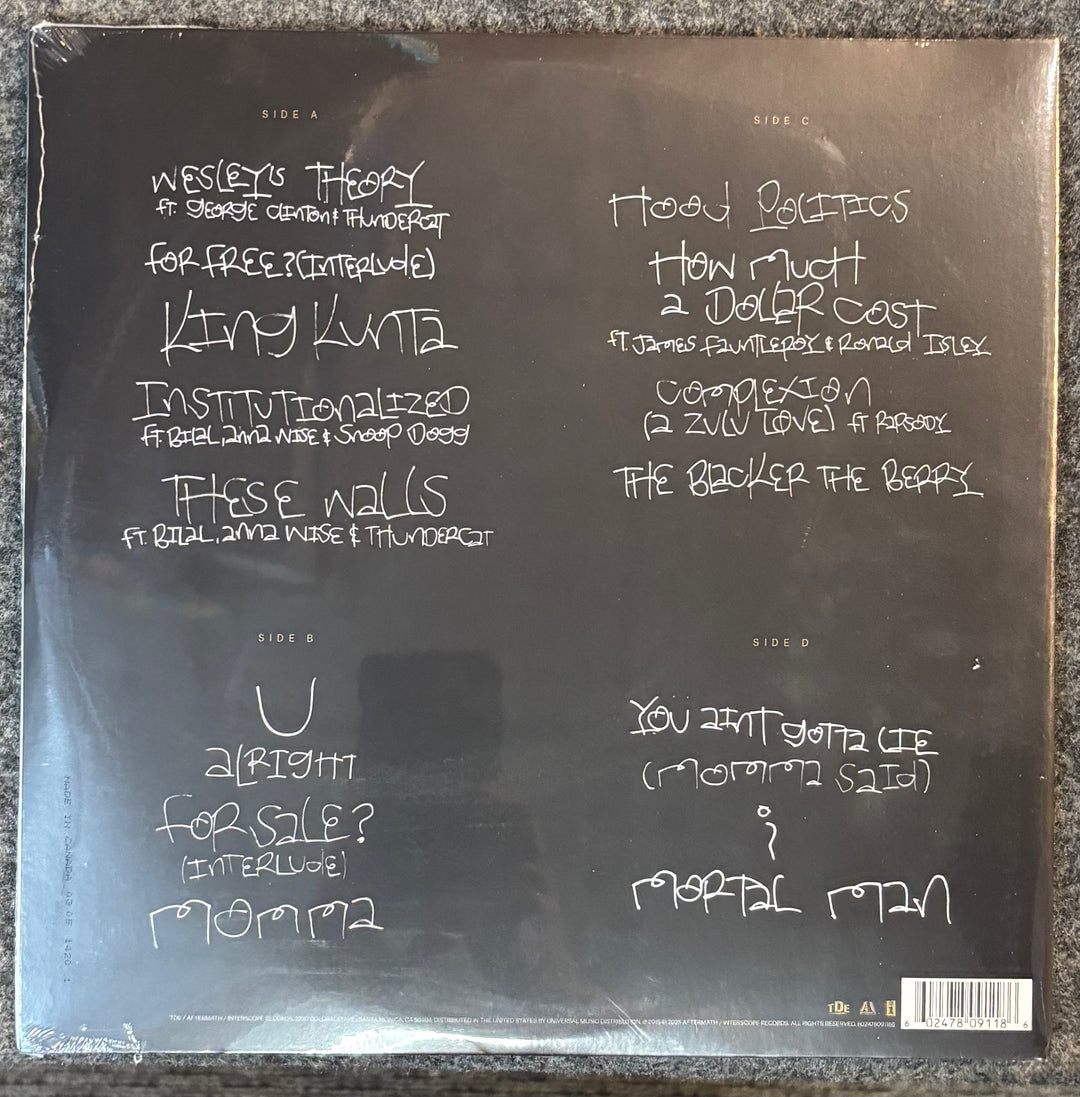 SIDE A
WESLEY'S THEORY
ft. GEORGE CLINTON & THUNDERCAT
FOR FREE? (INTERLUDE)
KING KUNTA
INSTITUTIONALIZED
ft. BILAL, ANNA WISE & SNOOP DOGG
THESE WALLS
ft. BILAL, ANNA WISE & THUNDERCAT
SIDE B
U
ALRIGHT
FOR SALE?
(INTERLUDE)
MOMMA
SIDE C
HOOD POLITICS
HOW MUCH
A DOLLAR COST
ft. JAMES FAUNTLEROY & RONALD ISLEY
COMPLEXION
(A ZULU LOVE) ft RAPSODY
THE BLACKER THE BERRY
SIDE D
YOU AINT GOTTA LIE
(MOMMA SAID)
i
MORTAL MAN
MADE IN CANADA
TDE
TDE / AFTERMATH / INTERSCOPE RECORDS, SANTA MONICA, CA 90404 DISTRIBUTED IN THE UNITED STATES BY UNIVERSAL MUSIC DISTRIBUTION. AFTERMATH / INTERSCOPE RECORDS. ALL RIGHTS RESERVED.
6 02478 09118 6